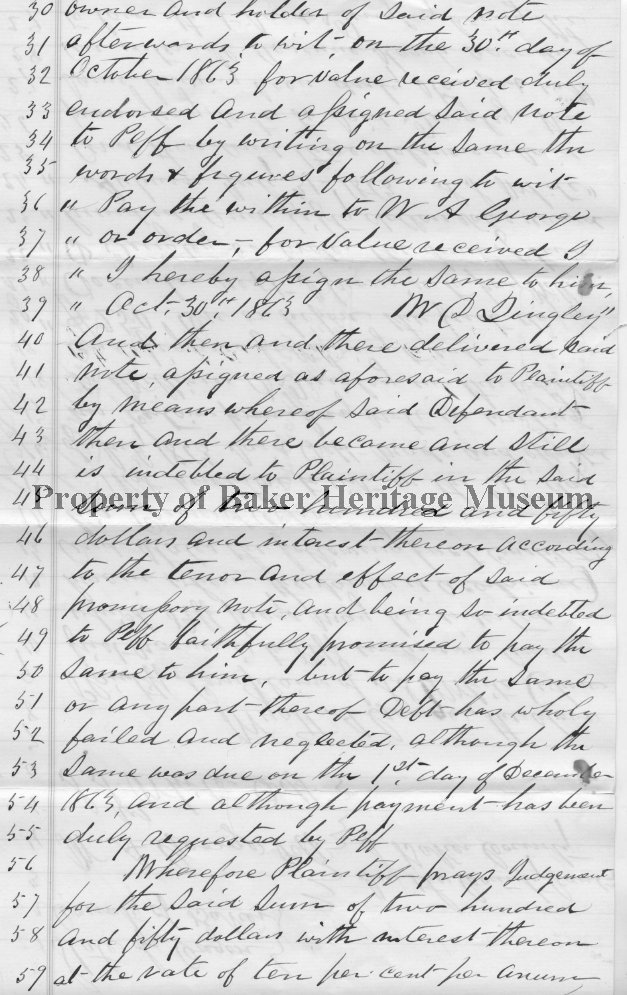 30 owner and holder of said note
31 afterwards, to wit on the 30th day of
32 October 1863 for value received duly
33 endorsed and assigned said note
34 to Peff by writing on the same the
35 words & figures following to wit
36 " Pay the within to W A George
37 " or order, for value received I
38 " I hereby assign the same to him,
39 " Oct. 30th, 1863 Dingley"
40 And then and there delivered said
41 note, assigned as aforesaid to Plaintiff
42 by means whereof said Defendant
43 then and there became and still
44 is indebted to Plaintiff in the said
45 Sum of two hundred and fifty
Property of Baker Heritage Museum
46 dollars and interest thereon according
47 to, the tenor and effect of said
48 promissory note, and being so indebted
49 to Peff faithfully promised to pay the
50 same to him, but to pay the same
51 or any part thereof Deft has wholy
52 failed and neglected, although the
53 same was due on the 1st day of December
54 1863, and although payment has been
55 duly requested by Peff
56 Wherefore Plaintiff prays Judgement
57 for the said Sum of two hundred
58 and fifty dollars with interest thereon
59 at the rate of ten per cent per anum,